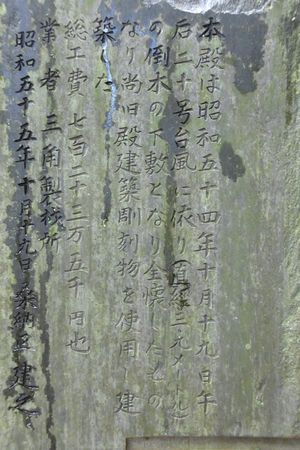 本殿は昭和五十四年十月十九日午
后二十号台風に依り直径三九メートル
の倒木の下敷となり全懐したもの
なり尚旧殿建築彫刻物を使用し建
築した
総工費 七百二十三万五千円也
業者 三角製材所
昭和五十五年十月十九日 桑納 建之